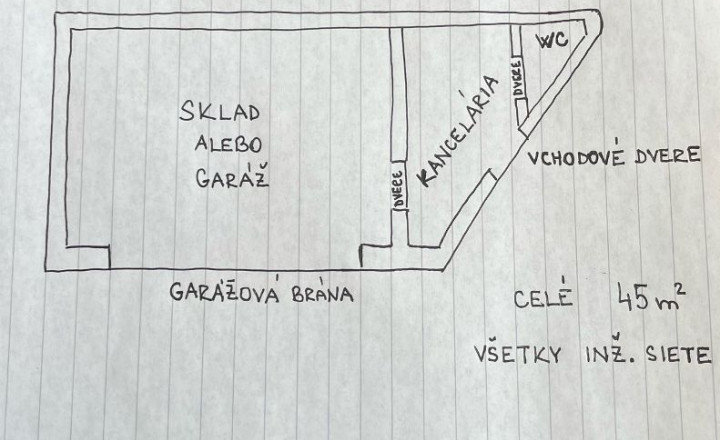 WC
DVERE
SKLAD
ALEBO
GARÁŽ
KANCELÁRIA
DVERE
VCHODOVÉ DVERE
GARÁŽOVÁ BRÁNA
CELÉ 45 m²
VŠETKY INŽ. SIETE